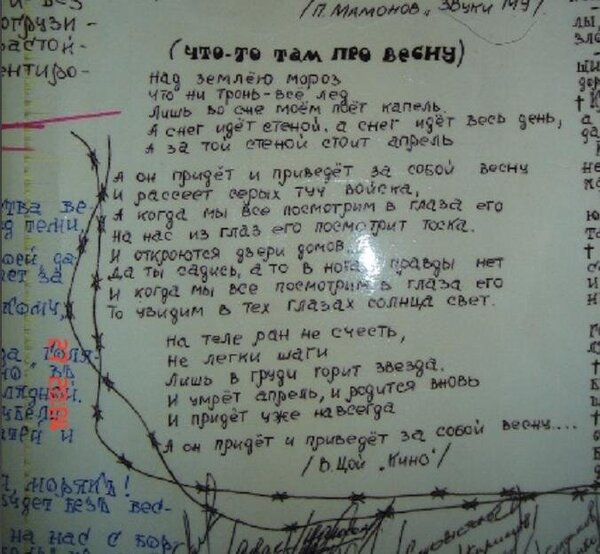 /П. Мамонов „Звуки Му"/
(ЧТО-ТО ТАМ ПРО ВЕСНУ)
Над землёю мороз
Что ни тронь-всё лёд
Лишь во сне моём поёт капель.
А снег идёт стеной, а снег идёт весь день,
А за той стеной стоит апрель
А он придёт и приведёт за собой весну
И рассеет серых туч войска,
А когда мы все посмотрим в глаза его
На нас из глаз его посмотрит тоска.
И откроются двери домов...
Да ты садись, а то в ногах правды нет
И когда мы все посмотрим в глаза его
То увидим в тех глазах солнца свет.
На теле ран не счесть,
Не легки шаги
Лишь в груди горит звезда.
И умрёт апрель, и родится вновь
И придёт уже навсегда
А он придёт и приведёт за собой весну....
/В. Цой „Кино"/
морякъ!
будет безъ вес-
на нас с